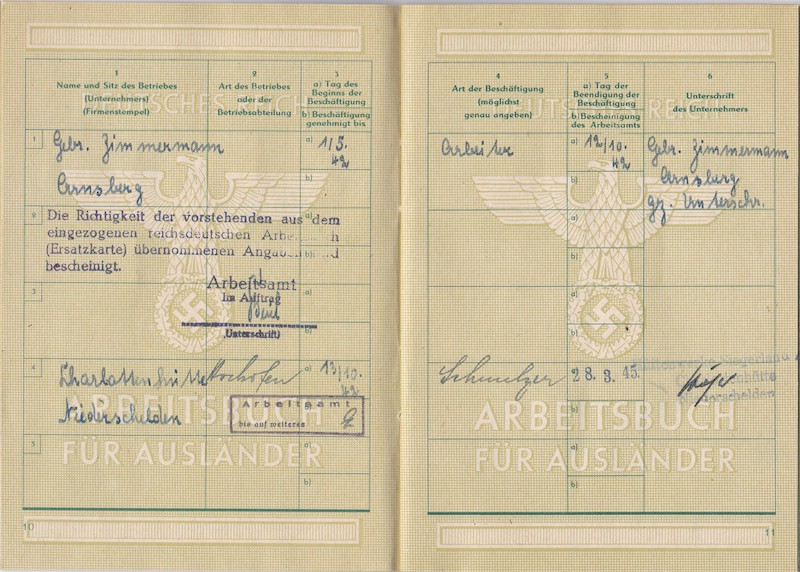 1
Name und Sitz des Betriebes
(Unternehmers)
(Firmenstempel)
2
Art des Betriebes
oder der
Betriebsabteilung
3
a) Tag des
Beginns der
Beschäftigung
b) Beschäftigung
genehmigt bis
DEUTSCHES REICH
1
Gebr. Zimmermann
a) 1/5.
42
b)
Arnsberg
2
Die Richtigkeit der vorstehenden aus dem
eingezogenen reichsdeutschen
(Ersatzkarte) übernommenen
bescheinigt.
a)
b)
Arbeitsamt
Im Auftrag
(Unterschrift)
3
a)
b)
4
Charlottenhütte Hochofen
a) 13/10.
42
Niederschelden
Arbeitsamt
bis auf weiteres
ARBEITSBUCH
FÜR AUSLÄNDER
5
a)
b)
10
4
Art der Beschäftigung
(möglichst
genau angeben)
5
a) Tag der
Beendigung der
Beschäftigung
b) Bescheinigung
des Arbeitsamts
6
Unterschrift
des Unternehmers
DEUTSCHES REICH
Arbeiter
a) 12/10.
42
b)
Gebr. Zimmermann
Arnsberg
gz. Unterschr.
a)
b)
a)
b)
Schmelzer
28. 3. 45.
Siegerland
Niederschelden
b)
ARBEITSBUCH
FÜR AUSLÄNDER
a)
b)
11